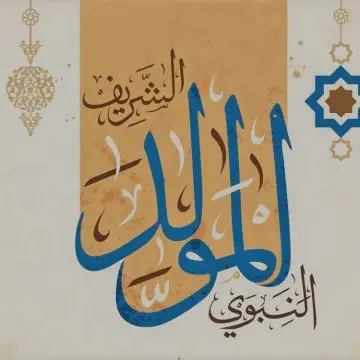 المَوْلِد
النَّبَوِيّ
الشَّرِيف